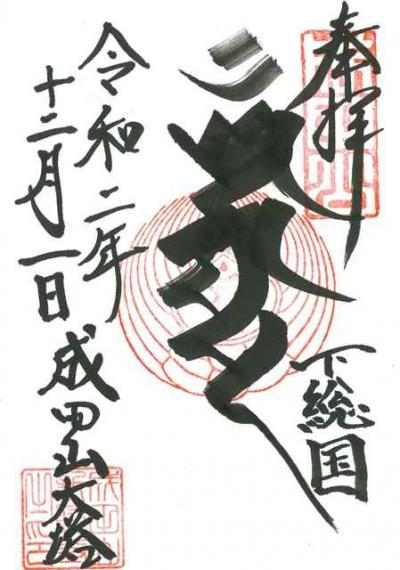 奉拝
下総国
令和二年
十二月一日
成田山大塔